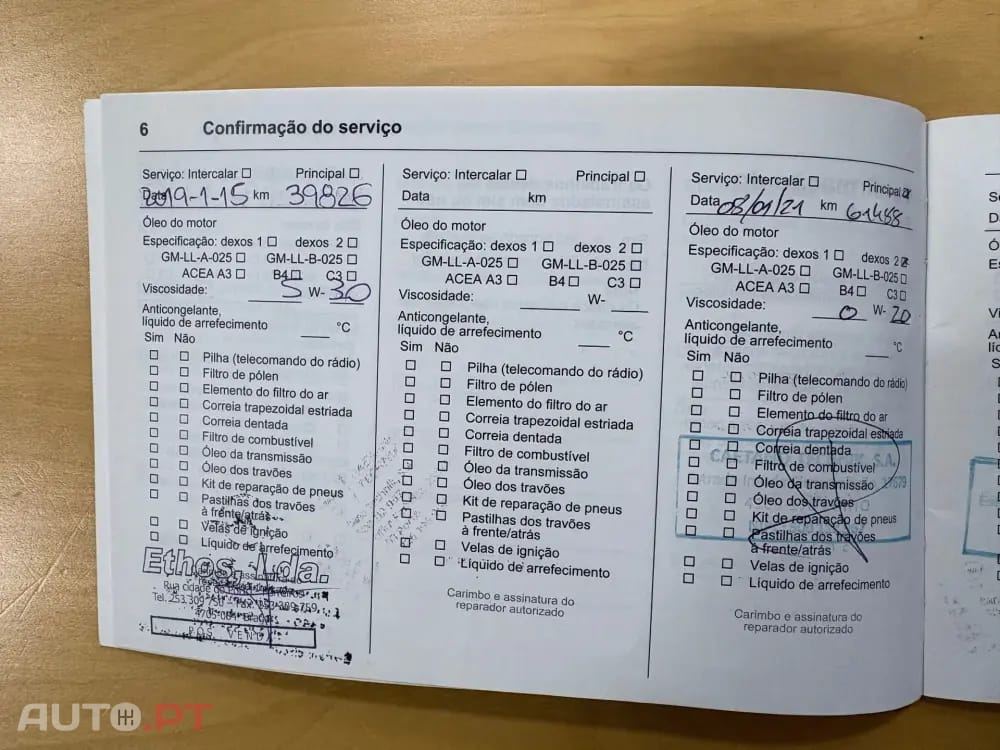 6 Confirmação do serviço
Serviço: Intercalar ☐ Principal ☐
Data 2019-1-15 km 39826
Óleo do motor
Especificação: dexos 1 ☐ dexos 2 ☐
GM-LL-A-025 ☐ GM-LL-B-025 ☐
ACEA A3 ☐ B4 ☐ C3 ☐
Viscosidade: 5 W- 30
Anticongelante,
líquido de arrefecimento °C
Sim Não
☐ ☐ Pilha (telecomando do rádio)
☐ ☐ Filtro de pólen
☐ ☐ Elemento do filtro do ar
☐ ☐ Correia trapezoidal estriada
☐ ☐ Correia dentada
☐ ☐ Filtro de combustível
☐ ☐ Óleo da transmissão
☐ ☐ Óleo dos travões
☐ ☐ Kit de reparação de pneus
☐ ☐ Pastilhas dos travões
à frente/atrás
☐ ☐ Velas de ignição
☐ ☐ Líquido de arrefecimento
Ethos, Lda.
Rua cidade do
Tel. 253 309 750
PÓS VENDA
Serviço: Intercalar ☐ Principal ☐
Data km
Óleo do motor
Especificação: dexos 1 ☐ dexos 2 ☐
GM-LL-A-025 ☐ GM-LL-B-025 ☐
ACEA A3 ☐ B4 ☐ C3 ☐
Viscosidade: W-
Anticongelante,
líquido de arrefecimento °C
Sim Não
☐ ☐ Pilha (telecomando do rádio)
☐ ☐ Filtro de pólen
☐ ☐ Elemento do filtro do ar
☐ ☐ Correia trapezoidal estriada
☐ ☐ Correia dentada
☐ ☐ Filtro de combustível
☐ ☐ Óleo da transmissão
☐ ☐ Óleo dos travões
☐ ☐ Kit de reparação de pneus
☐ ☐ Pastilhas dos travões
à frente/atrás
☐ ☐ Velas de ignição
☐ ☐ Líquido de arrefecimento
Carimbo e assinatura do
reparador autorizado
Serviço: Intercalar ☐ Principal ☒
Data 08/01/21 km 61488
Óleo do motor
Especificação: dexos 1 ☐ dexos 2 ☒
GM-LL-A-025 ☐ GM-LL-B-025 ☐
ACEA A3 ☐ B4 ☐ C3 ☐
Viscosidade: 0 W- 20
Anticongelante,
líquido de arrefecimento °C
Sim Não
☐ ☐ Pilha (telecomando do rádio)
☐ ☐ Filtro de pólen
☐ ☐ Elemento do filtro do ar
☐ ☐ Correia trapezoidal estriada
☐ ☐ Correia dentada
☐ ☐ Filtro de combustível
☐ ☐ Óleo da transmissão
☐ ☐ Óleo dos travões
☐ ☐ Kit de reparação de pneus
☐ ☐ Pastilhas dos travões
à frente/atrás
☐ ☐ Velas de ignição
☐ ☐ Líquido de arrefecimento
Carimbo e assinatura do
reparador autorizado
AUTO.PT